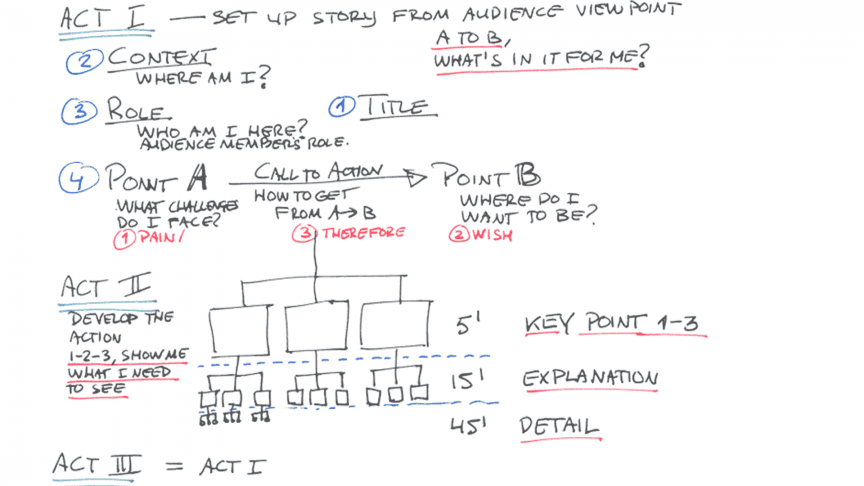 ACT I — SET UP STORY FROM AUDIENCE VIEW POINT
A TO B,
WHAT'S IN IT FOR ME?
2 CONTEXT
WHERE AM I?
3 ROLE
WHO AM I HERE?
AUDIENCE MEMBER'S ROLE.
1 TITLE
4 POINT A
WHAT CHALLENGES
DO I FACE?
1 PAIN/
CALL TO ACTION
HOW TO GET
FROM A→B
3 THEREFORE
POINT B
WHERE DO I
WANT TO BE?
2 WISH
ACT II
DEVELOP THE
ACTION
1-2-3, SHOW ME
WHAT I NEED
TO SEE
5' KEY POINT 1-3
15' EXPLANATION
45' DETAIL
ACT III = ACT I